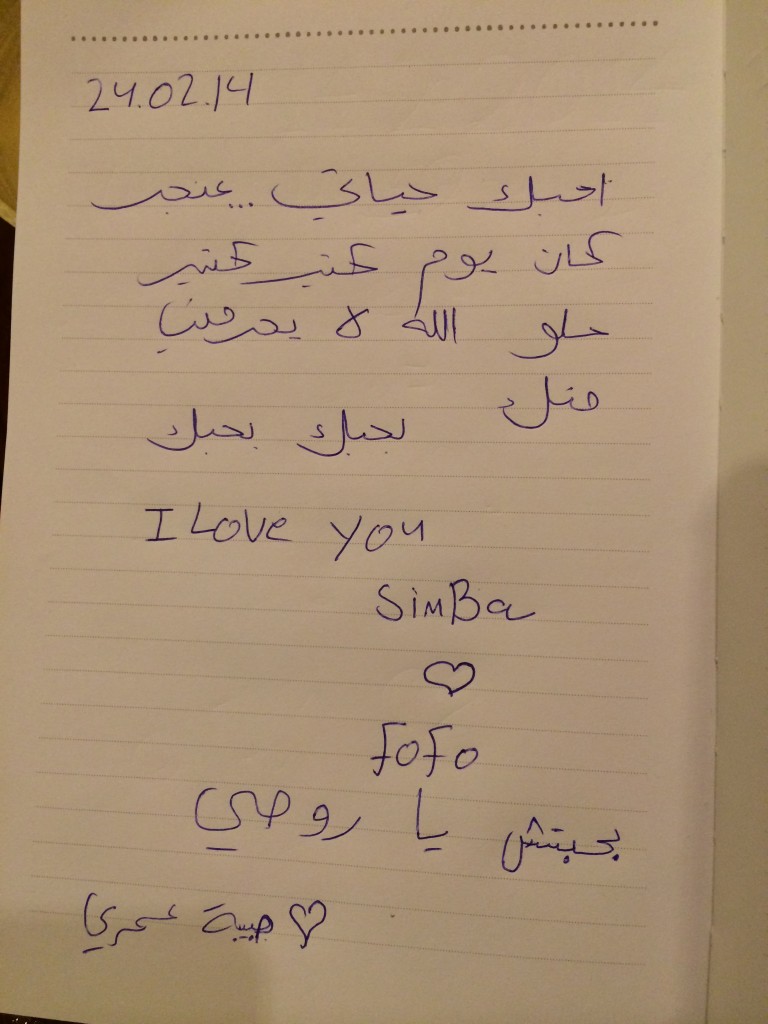 24.02.14
احبك حياتي...عنجد
كان يوم كتير كتير
حلو الله لا يحرمني
منك
بحبك بحبك
I Love you
SimBa
♡
fofo
بحبتش يا روحي
♡ حبيبة عمري